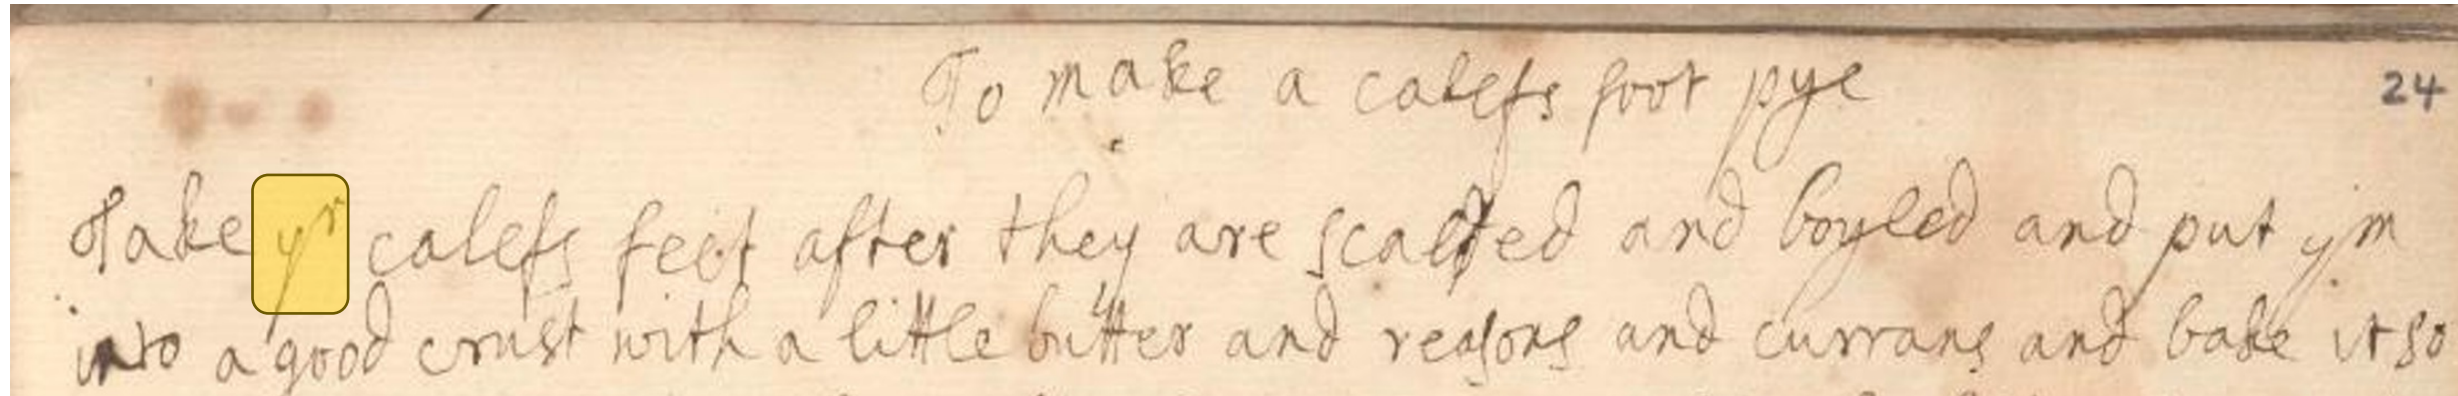 To make a calefs foot pye
24
Take yr calefs feet after they are scalded and boyled and put ym
into a good crust with a little butter and reasons and currans and bake it so